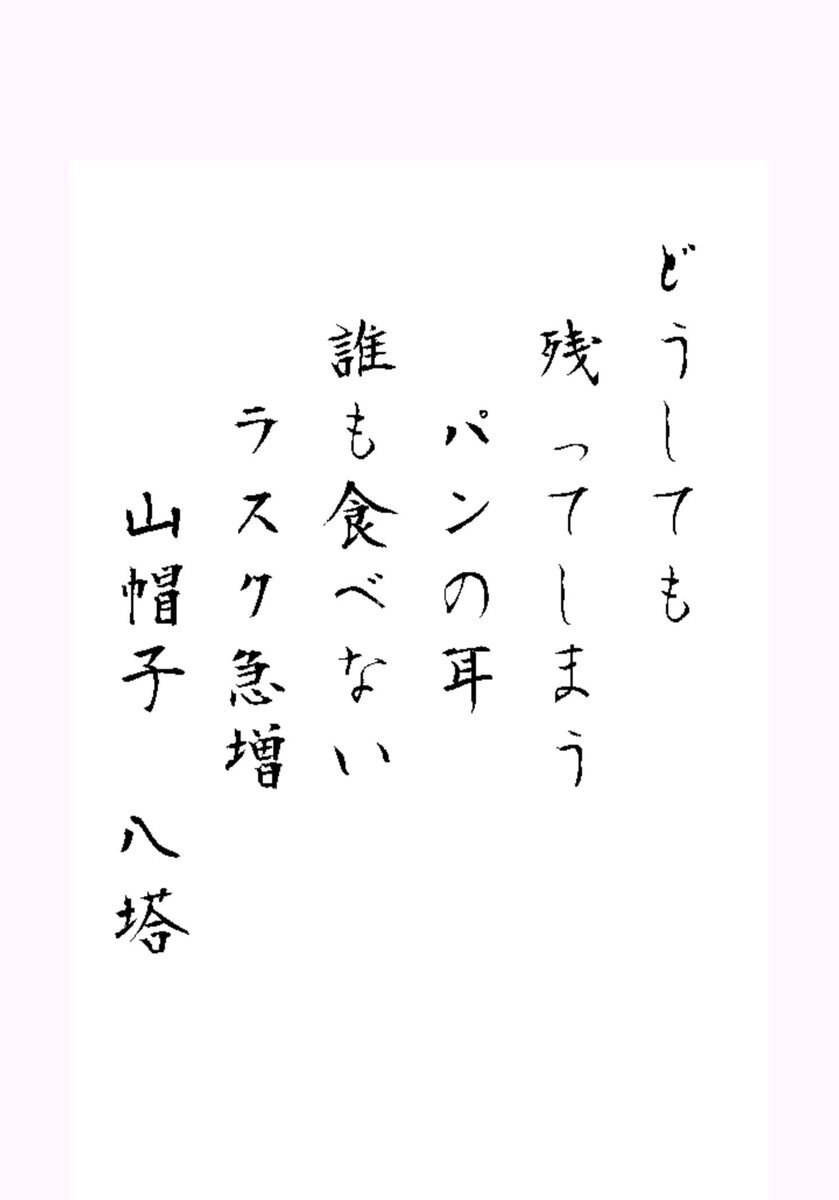 どうしても
残ってしまう
パンの耳
誰も食べない
ラスク急増
山帽子　八塔